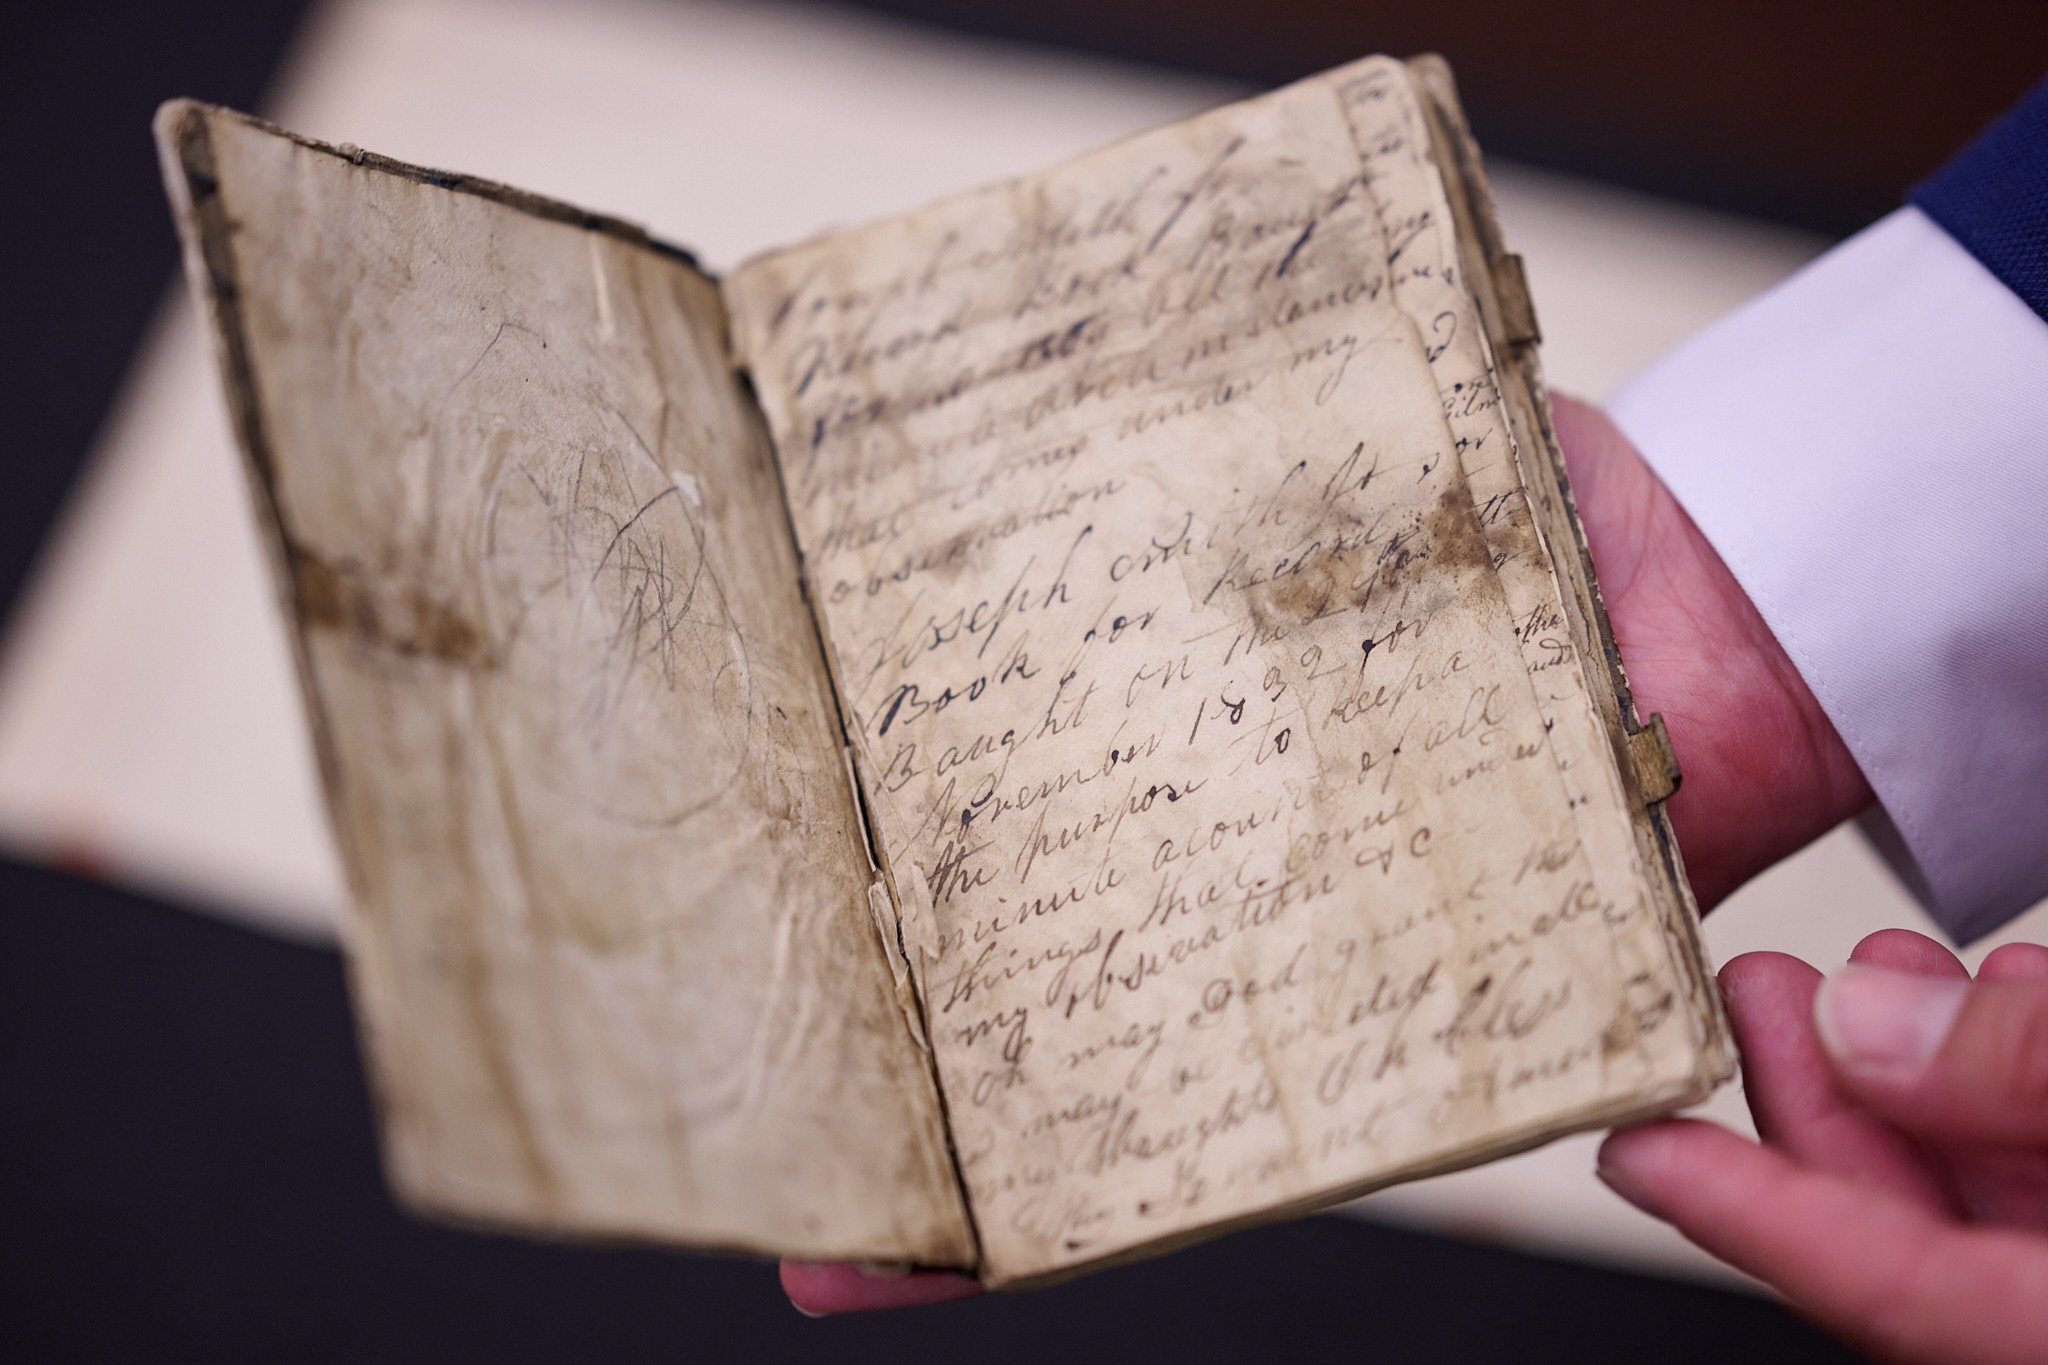 Joseph Smith Jr
Record Book Baught
for to note all the
minute circumstances
that comes under my
observation
Joseph Smith Jrs
Book for Record
Baught on the 27th of
November 1832 for
the purpose to keep a
minute acount of all
things that come under
my obsevation &c
oh may God grant that
I may be directed in all
my thaughts Oh bless
thy Servent Amen